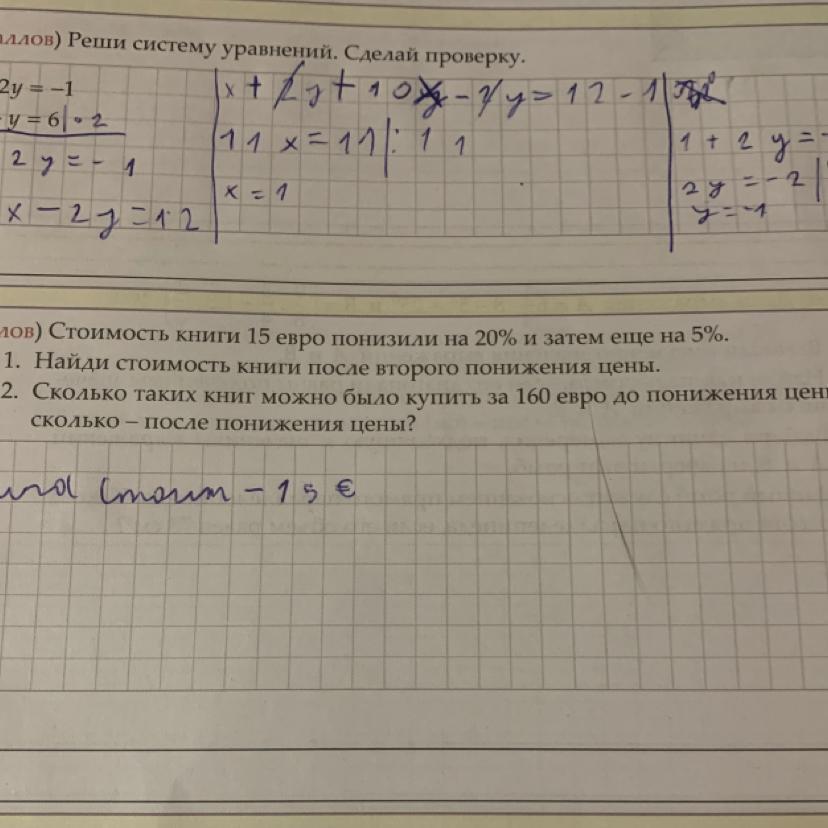 аллов) Реши систему уравнений. Сделай проверку.
2y = −1
y = 6 | · 2
2y = − 1
x − 2y = 12
x + 2y + 10x − 2y = 12 − 1
11x = 11 | : 11
x = 1
1 + 2y = −
2y = −2 |
y = −1
лов) Стоимость книги 15 евро понизили на 20% и затем еще на 5%.
1. Найди стоимость книги после второго понижения цены.
2. Сколько таких книг можно было купить за 160 евро до понижения цен
сколько – после понижения цены?
стоит − 15 €